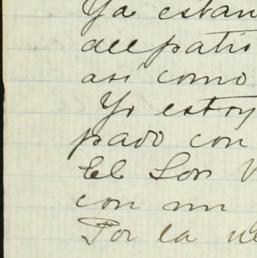 Ya estan
del patio
asi como
Yo estoy
pado con
El Sor
con un
Por la